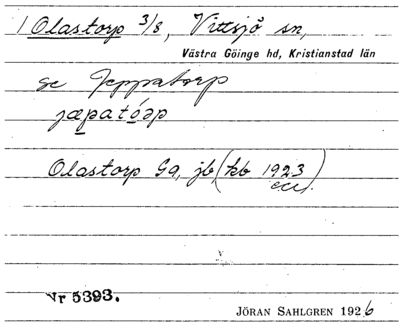 1 Olastorp 3/8, Vittsjö sn,
Västra Göinge hd, Kristianstad län
se Jeppatorp
jæpatóap
Olastorp Ga, jb (kb 1923
Nr 5393.
JÖRAN SAHLGREN 1926